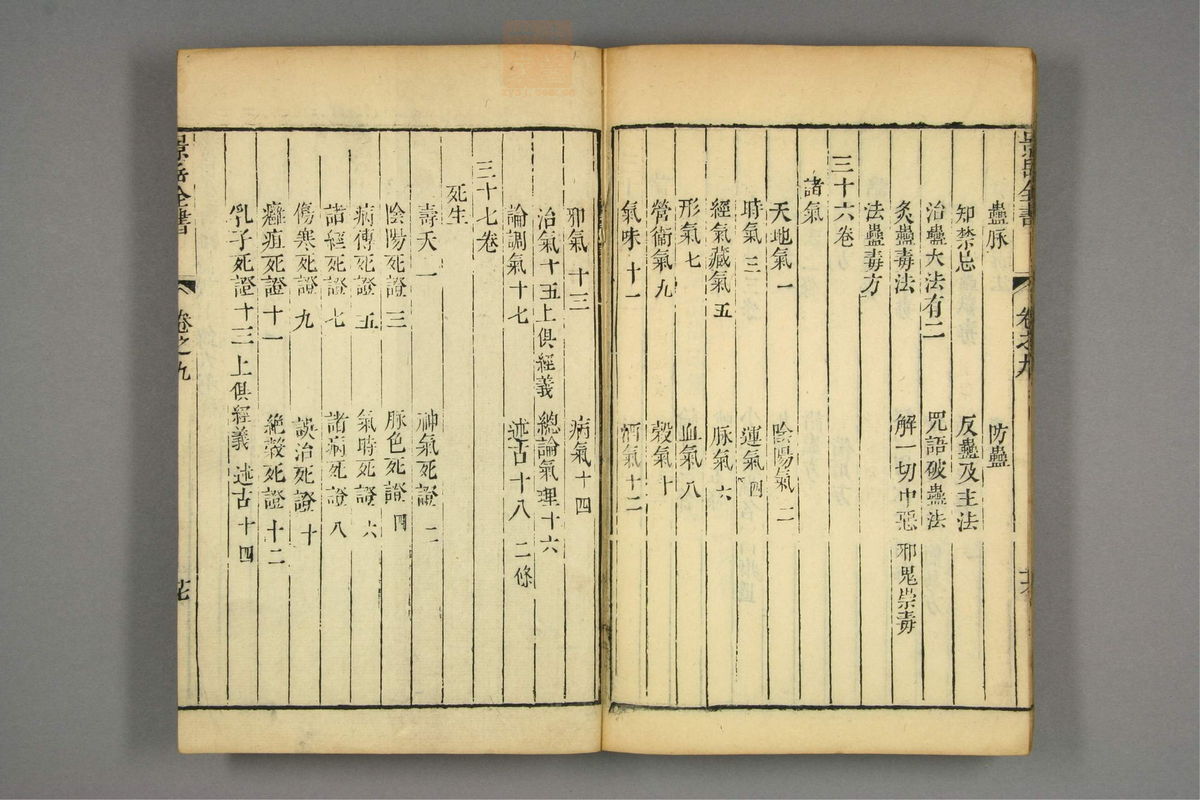 蠱脉　防蠱
知禁忌　反蠱及主法
治蠱大法有二　咒語破蠱法
灸蠱毒法　解一切中惡邪鬼祟毒
法蠱毒方
三十六卷
諸氣
天地氣一　陰陽氣二
時氣三　運氣四
經氣藏氣五　脉氣六
形氣七　血氣八
營衞氣九　穀氣十
氣味十一　酒氣十二
邪氣十三　病氣十四
治氣十五上俱經義　總論氣理十六
論調氣十七　述古十八二條
三十七卷
死生
壽夭一　神氣死證二
陰陽死證三　脉色死證四
病傳死證五　氣時死證六
諸經死證七　諸病死證八
傷寒死證九　誤治死證十
癰疽死證十一　絶穀死證十二
乳子死證十三上俱經義　述古十四
景岳全書　卷之九